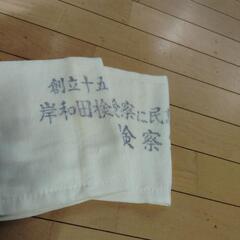 創立十五
岸和田検
察に民
検察